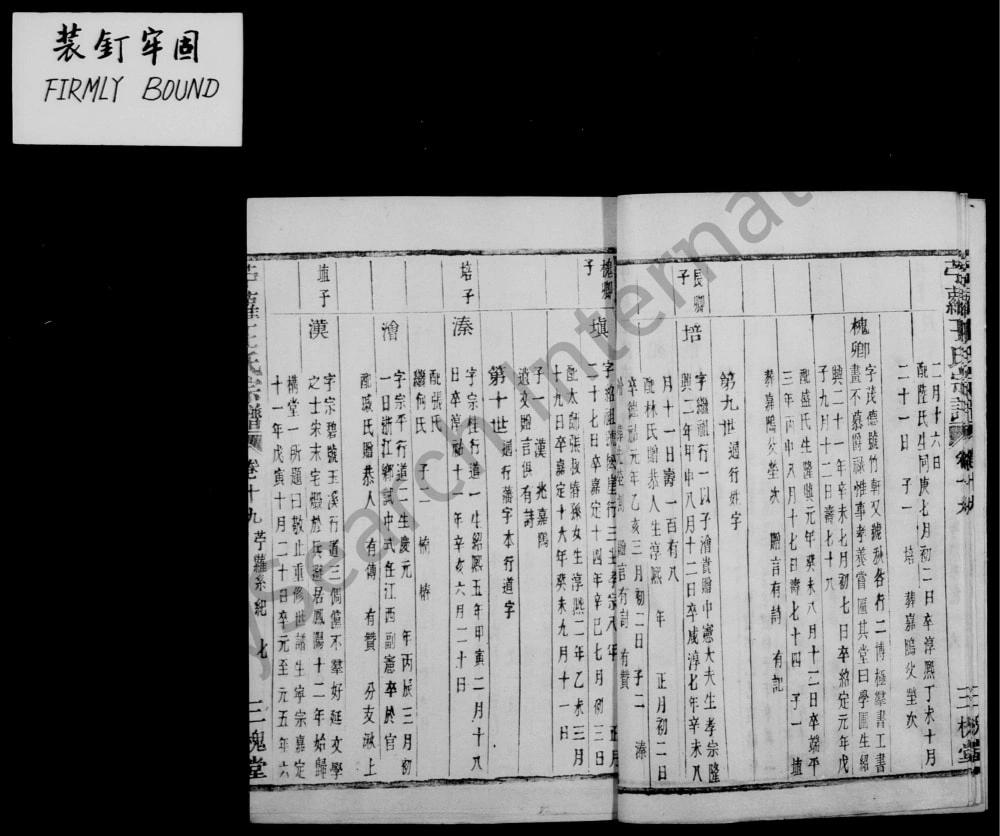 裝釘牢固
FIRMLY BOUND
二月十六日
配陸氏生同庚七月初二日卒淳熙丁未十月
二十一日 子一 培 葬嘉鵰父塋次
槐卿
字茂德號竹軒又號秋谷行二博極羣書工書
畫不慕爵祿惟事孝養嘗匾其堂曰學圃生紹
興二十一年辛未七月初七日卒紹定元年戊
子九月十二日壽七十八
配盛氏生隆興元年癸未八月十二日卒端平
三年丙申八月十七日壽七十四 子一 埴
葬嘉鵰父塋次 贈言有詩 有記
第九世 週行姓字
長卿子
培
字繼祖行一以子澮貴贈中憲大夫生孝宗隆
興二年甲申八月十二日卒咸淳七年辛未八
月十一日壽一百有八
配林氏贈恭人生淳熙 年 正月初二日
卒德祐元年乙亥三月初二日 子二 溱
贈言有詩 有贊
槐卿子
二十七日卒嘉定十四年辛巳七月初三日
配太師張叔椿孫女生淳熙二年乙未三月
十九日卒嘉定十六年癸未九月十一日
子一 漢
遺文贈言俱有詩
第十世 週行藩字本行道字
培子
溱
字宗桂行道一生紹熙五年甲寅二月十八
日卒淳祐十一年辛亥六月二十日
配張氏
繼何氏 子二 楠 椿
澮
字宗平行道二生慶元 年丙辰三月初
一日浙江鄉試中式任江西副憲卒於官
配戚氏贈恭人 有傳 有贊 分支湫上
埴子
漢
字宗碧號玉溪行道三倜儻不羣好延文學
之士宋末宅燬於兵避居鳳陽十二年始歸
構堂一所題曰敬止重修世譜生寧宗嘉定
十一年戊寅十月二十日卒元至元五年六
苧蘿王氏宗譜 卷十九 苧蘿系紀 七 三槐堂